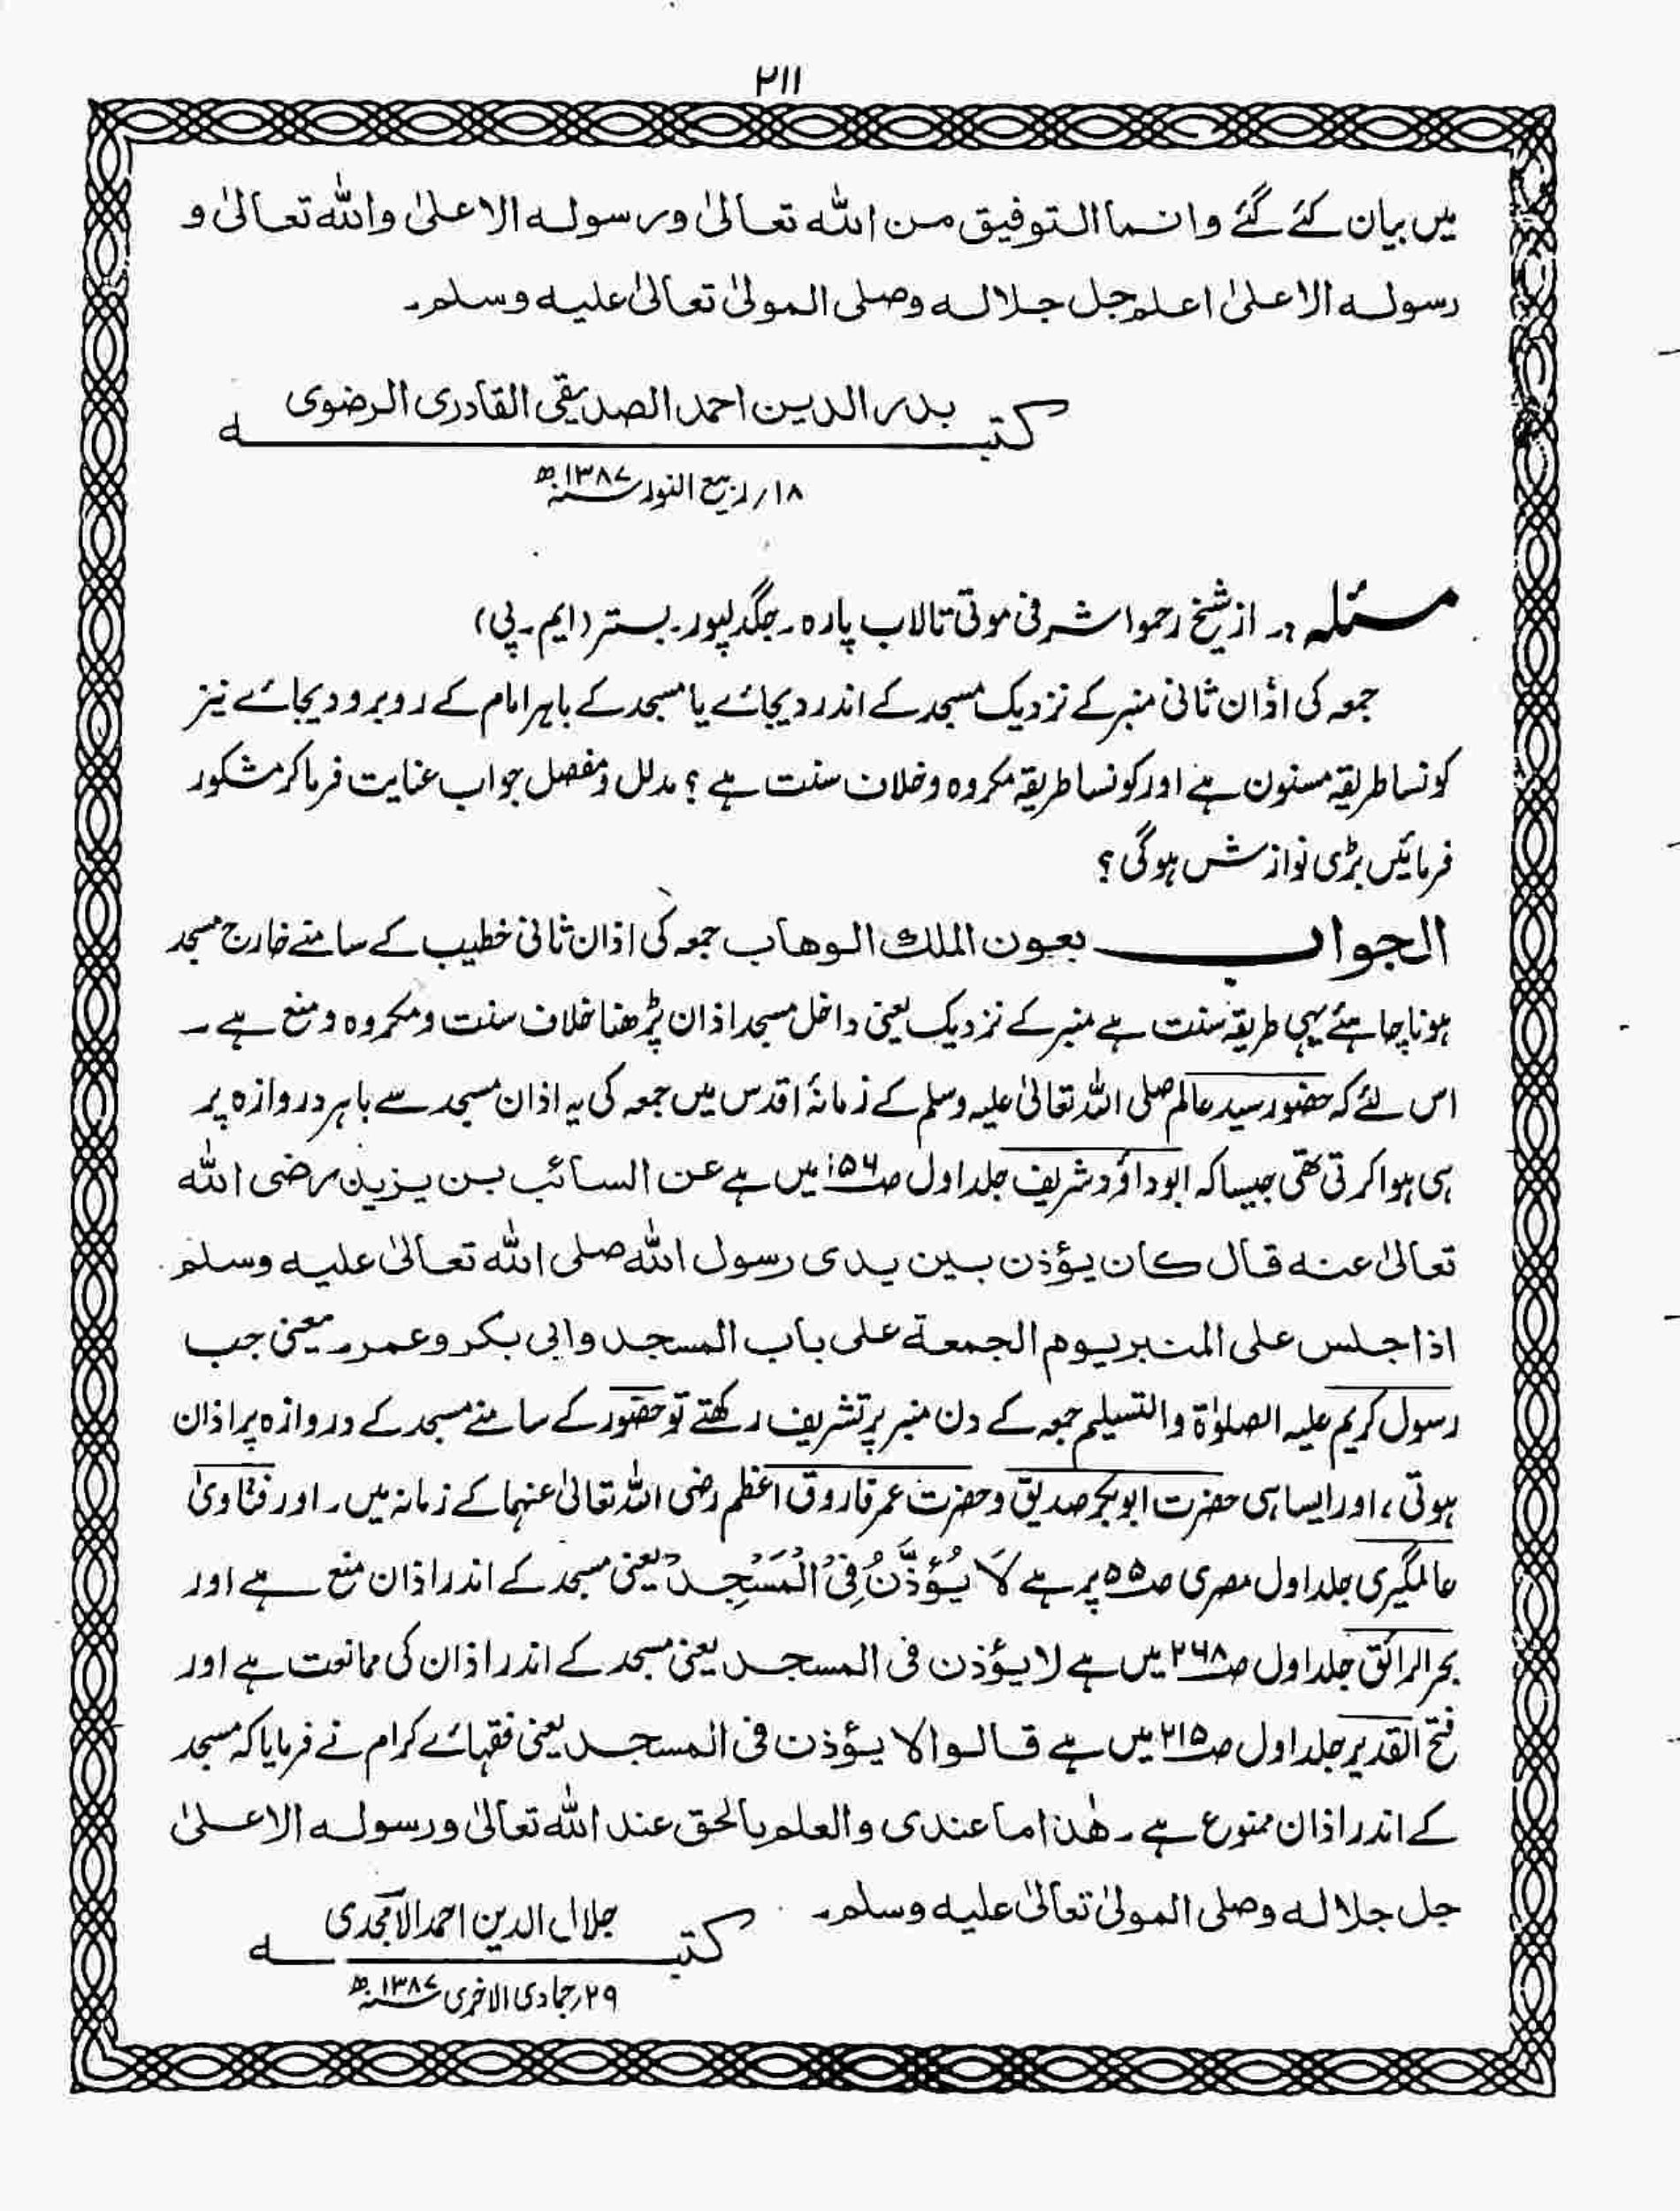 ۲۱۱
میں بیان کئے گئے وانما التوفیق من اللہ تعالیٰ ورسولہ الاعلیٰ واللہ تعالیٰ و
رسولہ الاعلیٰ اعلم جل جلالہ وصلی المولیٰ تعالیٰ علیہ وسلم۔
کتبہ بدر الدین احمد الصدیقی القادری الرضوی
۱۸/ ربیع النور سنہ ۱۳۸۷ھ
مسئلہ:۔ از شیخ رحموا شرفی موتی تالاب پارہ۔ جگدلپور۔ بستر (ایم۔پی)
جمعہ کی اذان ثانی منبر کے نزدیک مسجد کے اندر دیجائے یا مسجد کے باہر امام کے روبرو دیجائے نیز
کونسا طریقہ مسنون ہے اور کونسا طریقہ مکروہ و خلاف سنت ہے؟ مدلل و مفصل جواب عنایت فرما کر مشکور
فرمائیں بڑی نوازش ہوگی؟
الجواب بعون الملک الوھاب جمعہ کی اذان ثانی خطیب کے سامنے خارج مسجد
ہونا چاہئے یہی طریقہ سنت ہے منبر کے نزدیک یعنی داخل مسجد اذان پڑھنا خلاف سنت و مکروہ و منع ہے۔
اس لئے کہ حضور سید عالم صلی اللہ تعالیٰ علیہ وسلم کے زمانۂ اقدس میں جمعہ کی یہ اذان مسجد سے باہر دروازہ پر
ہی ہوا کرتی تھی جیسا کہ ابوداؤد شریف جلد اول ص۱۵۶ میں ہے عن السائب بن یزید رضی اللہ
تعالیٰ عنہ قال کان یؤذن بین یدی رسول اللہ صلی اللہ تعالیٰ علیہ وسلم
اذا جلس علی المنبر یوم الجمعة علی باب المسجد وابی بکر وعمر۔ یعنی جب
رسول کریم علیہ الصلوٰۃ والتسلیم جمعہ کے دن منبر پر تشریف رکھتے تو حضور کے سامنے مسجد کے دروازہ پر اذان
ہوتی، اور ایسا ہی حضرت ابوبکر صدیق و حضرت عمر فاروق اعظم رضی اللہ تعالیٰ عنہما کے زمانہ میں۔ اور فتاویٰ
عالمگیری جلد اول مصری ص۵۵ پر ہے لَا یُؤَذَّنُ فِی الْمَسْجِدِ یعنی مسجد کے اندر اذان منع ہے اور
بحر الرائق جلد اول ص۲۶۸ میں ہے لا یؤذن فی المسجد یعنی مسجد کے اندر اذان کی ممانعت ہے اور
فتح القدیر جلد اول ص۲۱۵ میں ہے قالوا لا یؤذن فی المسجد یعنی فقہائے کرام نے فرمایا کہ مسجد
کے اندر اذان ممنوع ہے۔ ھٰذا ما عندی والعلم بالحق عند اللہ تعالیٰ ورسولہ الاعلیٰ
جل جلالہ وصلی المولیٰ تعالیٰ علیہ وسلم۔
کتبہ جلال الدین احمد الامجدی
۲۹/ جمادی الاخریٰ سنہ ۱۳۸۷ھ